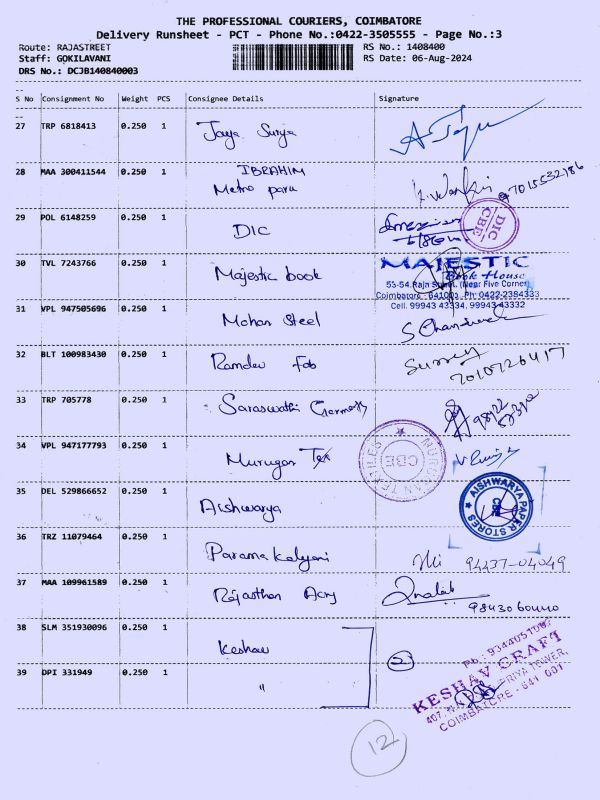 THE PROFESSIONAL COURIERS, COIMBATORE
Delivery Runsheet - PCT - Phone No.:0422-3505555 - Page No.:3
Route: RAJASTREET
RS No.: 1408400
Staff: GOKILAVANI
RS Date: 06-Aug-2024
DRS No.: DCJB140840003
S No Consignment No Weight PCS Consignee Details Signature
27 TRP 6818413 0.250 1 Jaya Surya
28 MAA 300411544 0.250 1 IBRAHIM
Metro para
7015532186
29 POL 6148259 0.250 1 DIC
DIC
CBE
30 TVL 7243766 0.250 1 Majestic book
MAJESTIC
Book House
53-54, Raja Street, (Near Five Corner)
Coimbatore - 641001. Ph: 0422-2384333
Cell: 99943 43334, 99943 43332
31 VPL 947505696 0.250 1 Mohan Steel
32 BLT 100983430 0.250 1 Ramdev Fab
7010726417
33 TRP 705778 0.250 1 Saraswathi Garments
34 VPL 947177793 0.250 1 Murugan Tex
TEXTILES
CBE
35 DEL 529866652 0.250 1 Aishwarya
AISHWARYA PAPER STORES
CBE
36 TRZ 11079464 0.250 1 Parama Kalyani
94437-04049
37 MAA 109961589 0.250 1 Rajasthan Acry
9843060440
38 SLM 351930096 0.250 1 Keshav
2
Ph: 9344051087
KESHAV CRAFT
PRIYA TOWER,
COIMBATORE - 641 001
39 DPI 331949 0.250 1 "
12